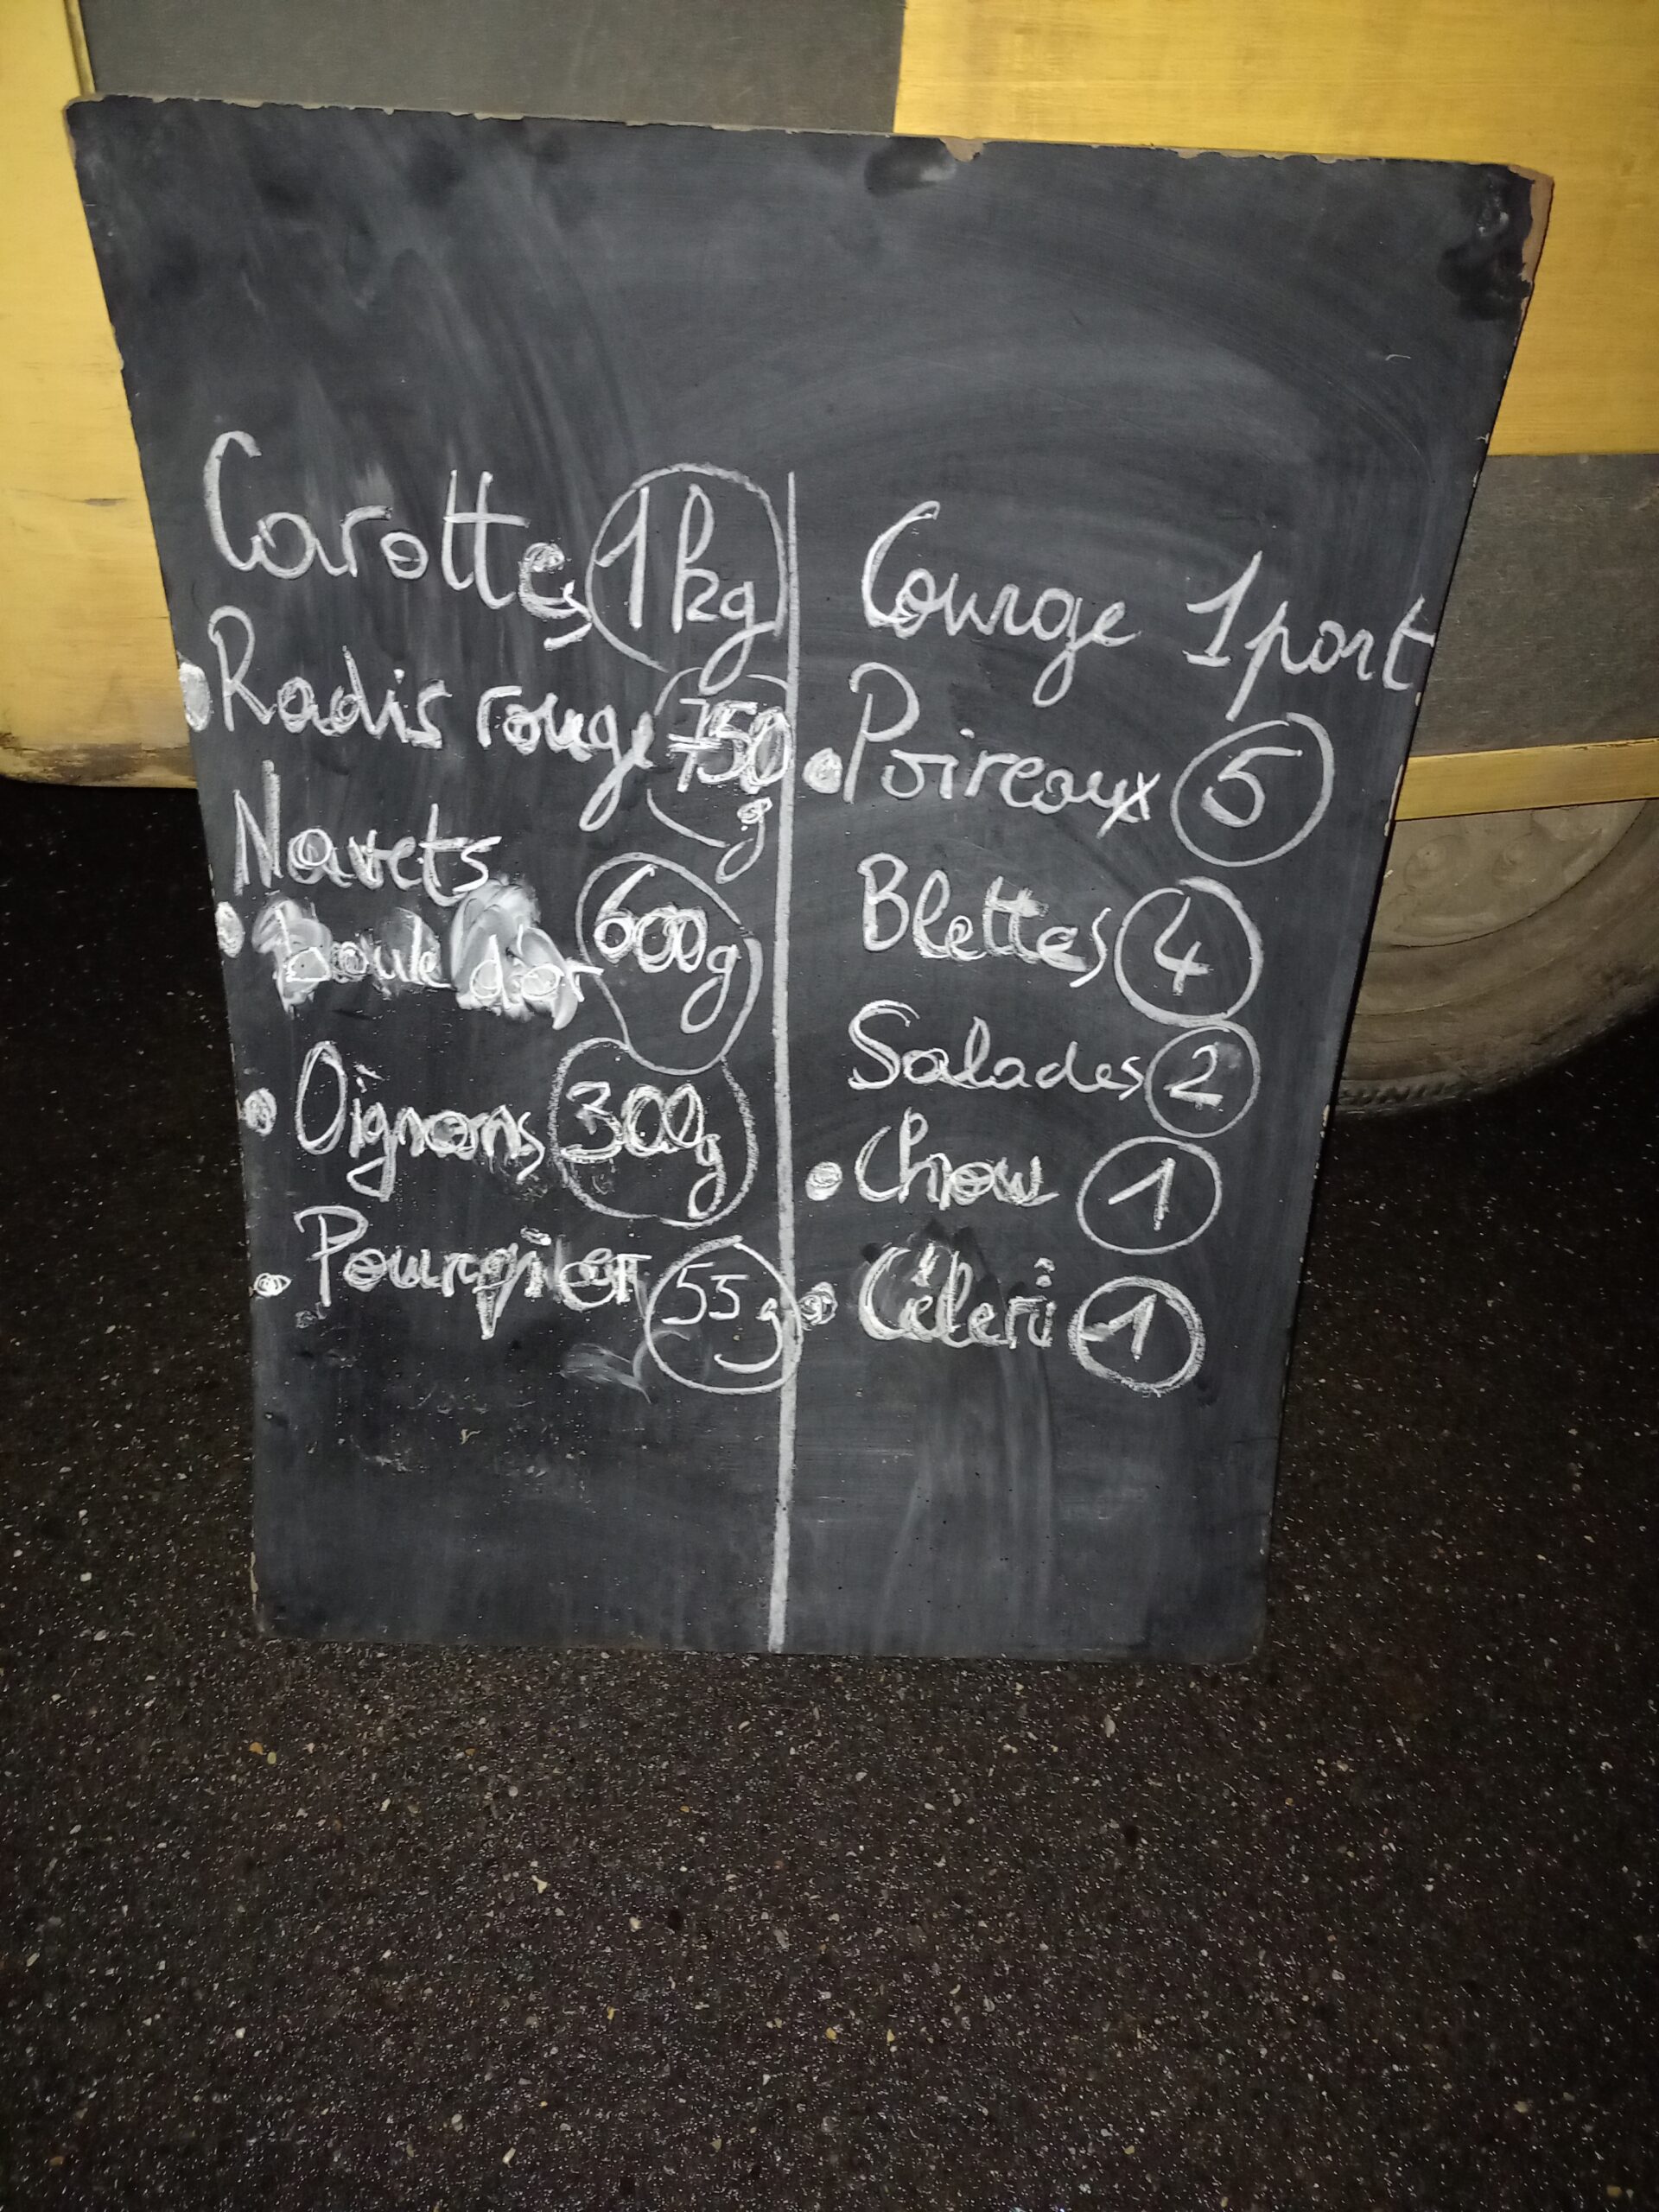 Carottes 1kg
• Radis rouge 750
g
Navets
• boule d'or 600g
• Oignons 300g
• Pourpier 55g
Courge 1 part
• Poireaux 5
Blettes 4
Salades 2
• Chou 1
• Céleri 1